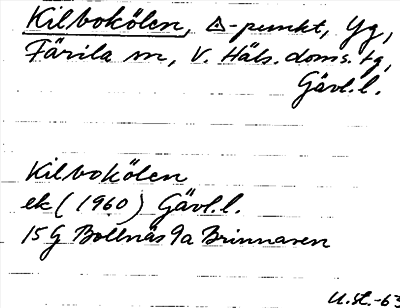 Kilbokölen, △-punkt, Yg,
Färila sn, V. Häls. doms. tg,
Gävl. l.
Kilbokölen
ek (1960) Gävl. l.
15G Bollnäs 9a Brinnaren
U.H.-63